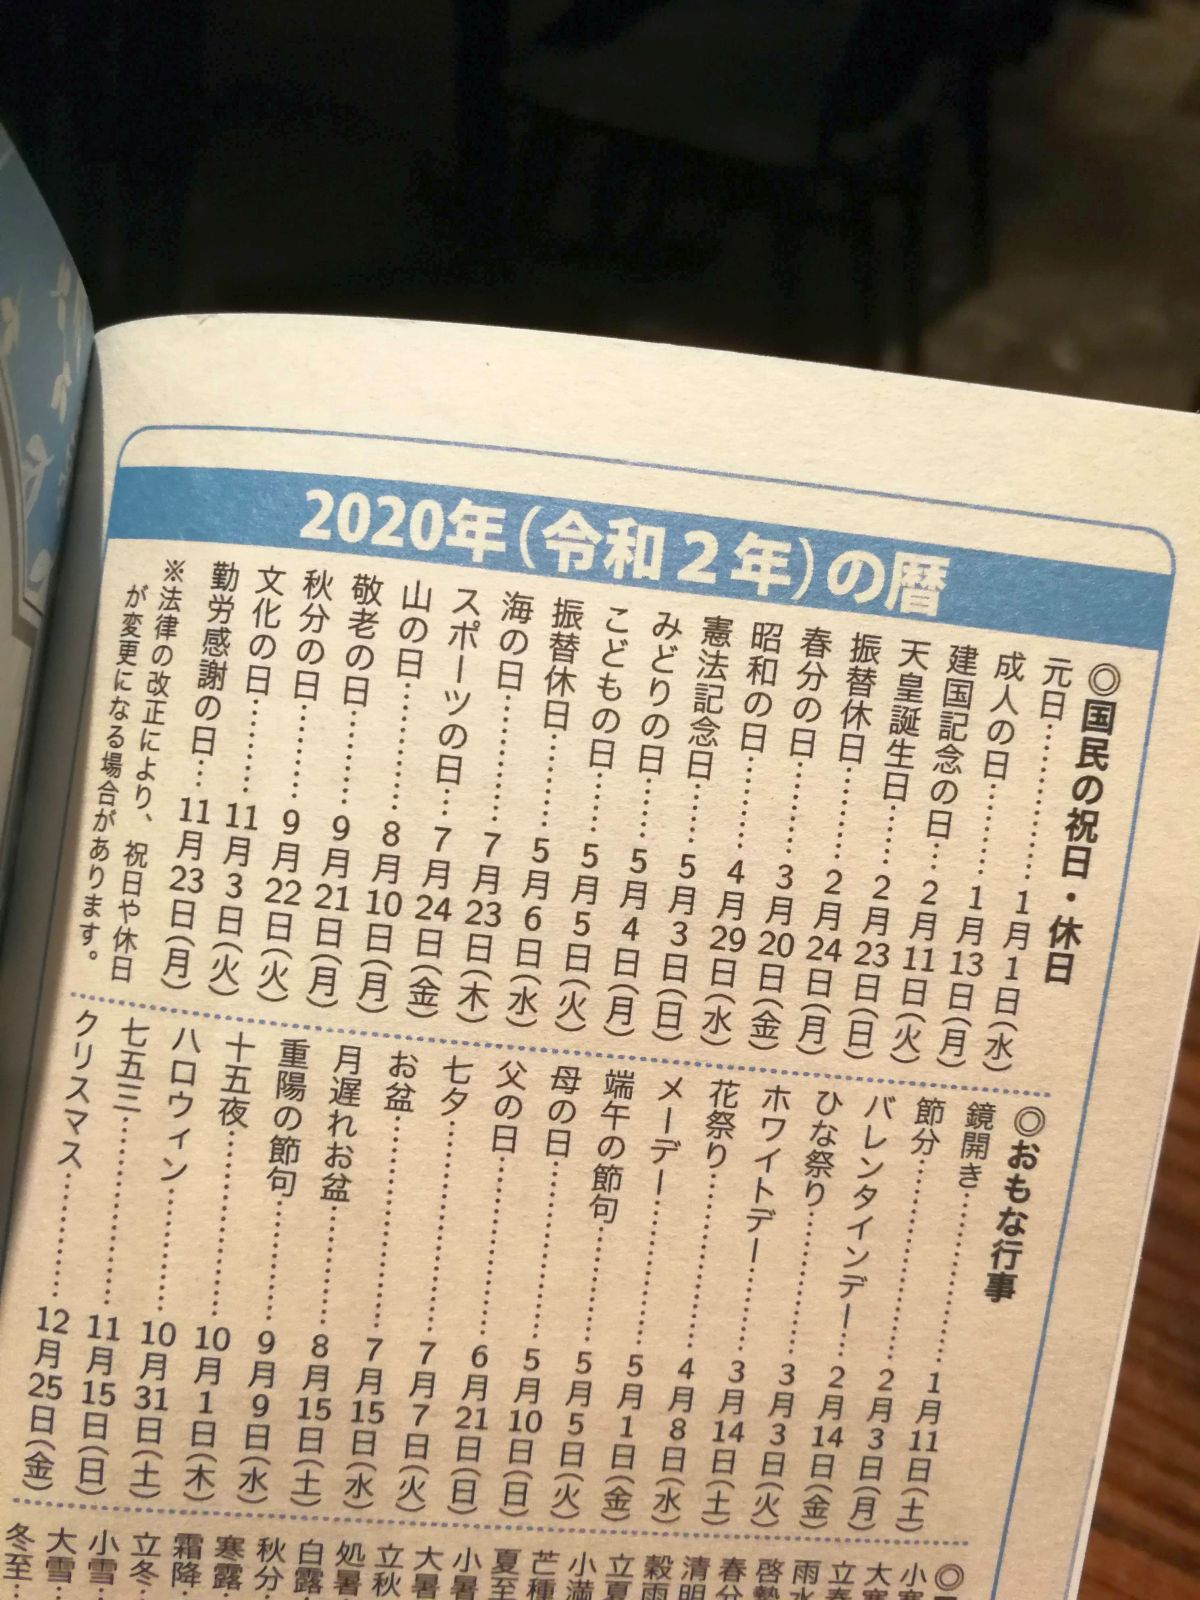 2020年(令和2年)の暦
◎国民の祝日・休日
元日……………1月1日(水)
成人の日…………1月13日(月)
建国記念の日…2月11日(火)
天皇誕生日……2月23日(日)
振替休日………2月24日(月)
春分の日………3月20日(金)
昭和の日………4月29日(水)
憲法記念日……5月3日(日)
みどりの日……5月4日(月)
こどもの日……5月5日(火)
振替休日………5月6日(水)
海の日…………7月23日(木)
スポーツの日…7月24日(金)
山の日…………8月10日(月)
敬老の日………9月21日(月)
秋分の日………9月22日(火)
文化の日………11月3日(火)
勤労感謝の日…11月23日(月)
※法律の改正により、祝日や休日
が変更になる場合があります。
◎おもな行事
鏡開き……………1月11日(土)
節分………………2月3日(月)
バレンタインデー…2月14日(金)
ひな祭り…………3月3日(火)
ホワイトデー……3月14日(土)
花祭り……………4月8日(水)
メーデー…………5月1日(金)
端午の節句………5月5日(火)
母の日……………5月10日(日)
父の日……………6月21日(日)
七夕………………7月7日(火)
お盆………………7月15日(水)
月遅れお盆………8月15日(土)
重陽の節句………9月9日(水)
十五夜……………10月1日(木)
ハロウィン………10月31日(土)
七五三……………11月15日(日)
クリスマス………12月25日(金)
◎
小寒
大寒
立春
雨水
啓蟄
春分
清明
穀雨
立夏
小満
芒種
夏至
小暑
大暑
立秋
処暑
白露
秋分
寒露
霜降
立冬…
小雪…
大雪…
冬至…